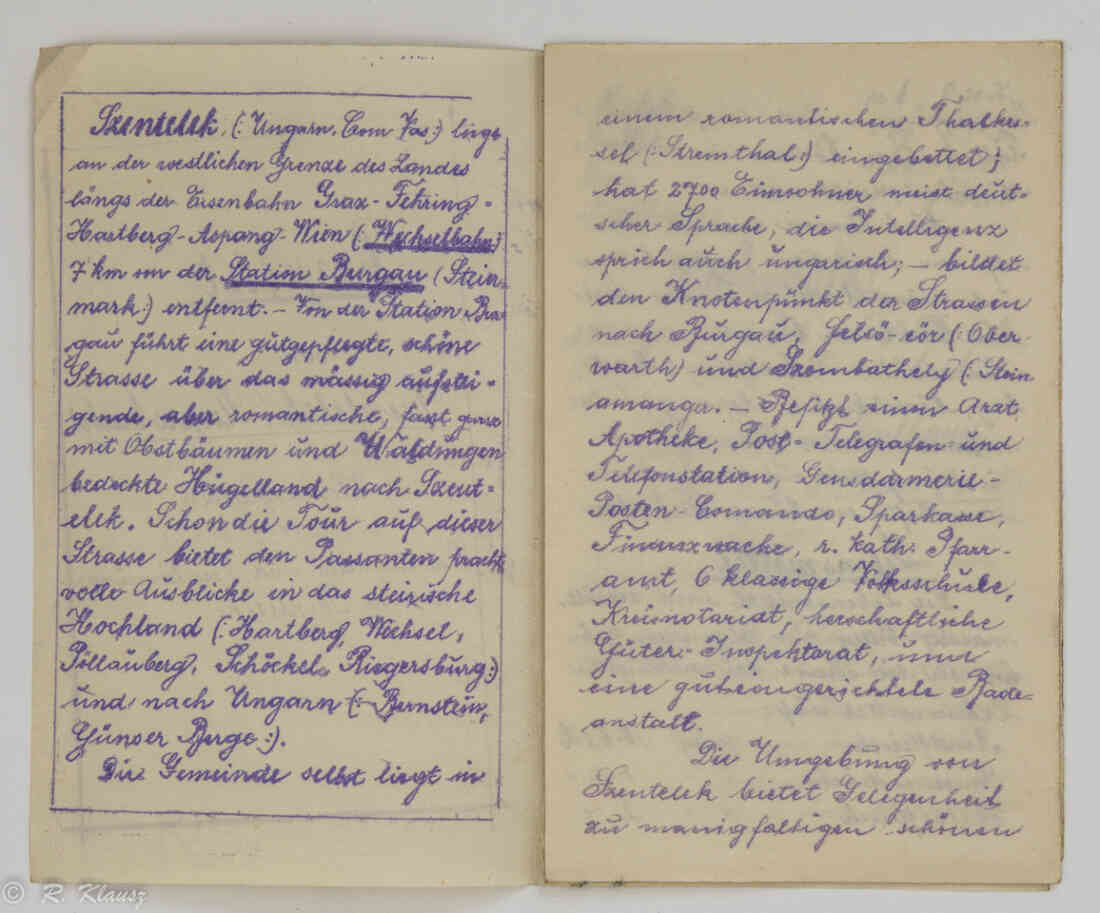 Szentelek, (: Ungarn. Com Vas:) liegt
an der westlichen Grenze des Landes
längs der Eisenbahn Graz-Fehring-
Hartberg-Aspang-Wien (: Wechselbahn:)
7 km von der Station Burgau (Steier
mark:) entfernt. – Von der Station Bur
gau führt eine gutgepflegte, schöne
Strasse über das mässig aufstei-
gende, aber romantische, fasst ganz
mit Obstbäumen und Waldungen
bedeckte Hügelland nach Szent-
elek. Schon die Tour auf dieser
Strasse bietet den Passanten pracht
volle Ausblicke in das steirische
Hochland (: Hartberg, Wechsel,
Pöllauberg, Schöckel, Riegersburg:)
und nach Ungarn (: Bernstein,
Günser Berge:).
Die Gemeinde selbst liegt in
einem romantischen Thalkes-
sel (: Stremthal:) eingebettet;
hat 2700 Einwohner meist deut-
scher Sprache, die Intelligenz
sprich auch ungarisch; – bildet
den Knotenpunkt der Strassen
nach Burgau, Felsö-eör (: Ober
warth) und Szombathely (: Stein
amanga. – Besitzt einen Arzt
Apotheke, Post- Telegrafen- und
Telefonstation, Gensdarmerie-
Posten-Comando, Sparkasse,
Finanzwache, r. kath. Pfarr-
amt 6 klassige Volksschule,
Kreisnotariat, herschaftliche
Güter-Inspektorat, und
eine guteingerichtete Bade-
anstalt.
Die Umgebung von
Szentelek bietet Gelegenheit
zu manigfaltigen schönen
© R. Klausz